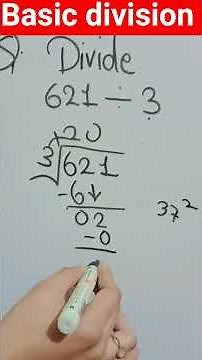 Basic division
Q. Divide
621 ÷ 3
20
3 621
-6↓
02
-0
3 > 2